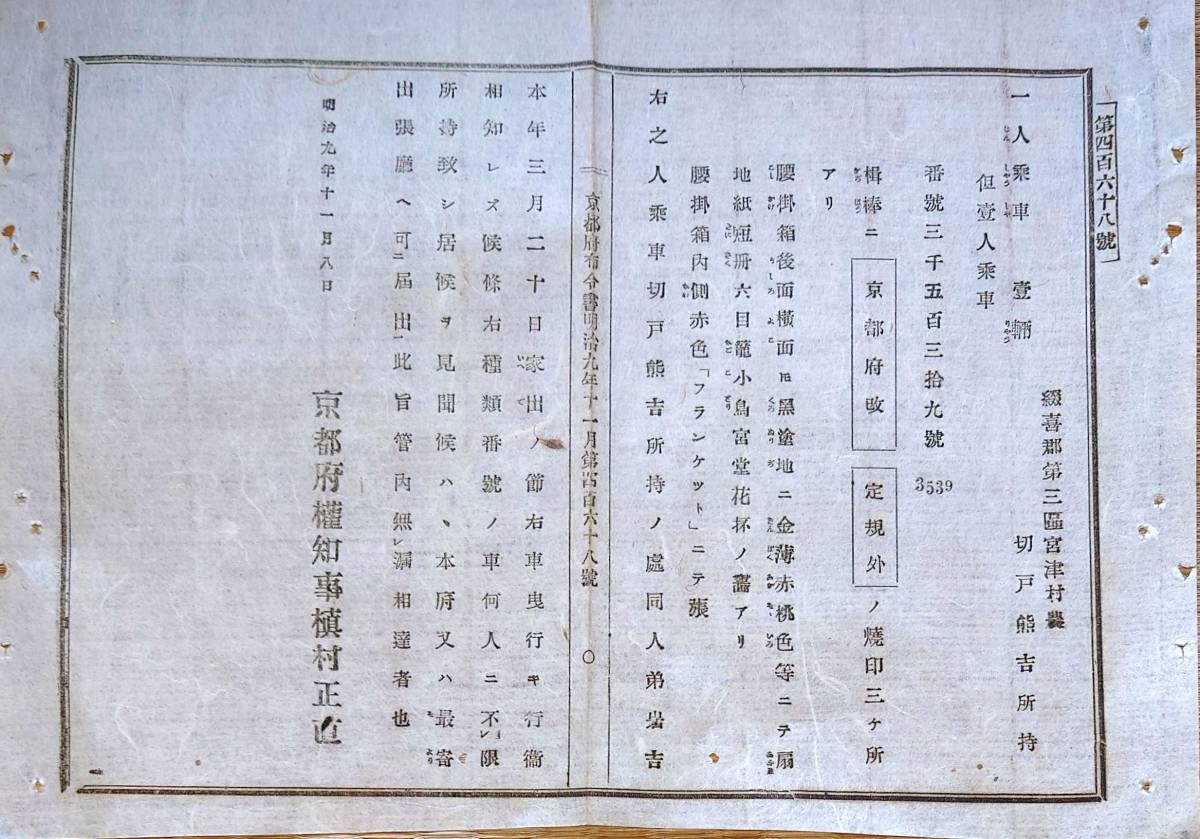 第四百六十八號
綴喜郡第三區宮津村農
切戸熊吉所持
一人乘車 壹輛
但壹人乘車
番號三千五百三拾九號
3539
楫棒ニ 京都府改 定規外 ノ燒印三ケ所
アリ
腰掛箱後面橫面㆑黑塗地ニ金薄赤桃色等ニテ扇
地紙短冊六目籠小鳥宮堂花抔ノ畵アリ
腰掛箱內側赤色「フランケット」ニテ張
右之人乘車切戸熊吉所持ノ處同人弟岩吉
京都府布令書明治九年十一月第四百六十八號 〇
本年三月二十日家出ノ節右車曳行キ行衞
相知レス候條右種類番號ノ車何人ニ不限
所持致シ居候ヲ見聞候ハヽ本府又ハ最寄
出張廳ヘ可屆出此旨管內無漏相達者也
明治九年十一月八日
京都府權知事槇村正直